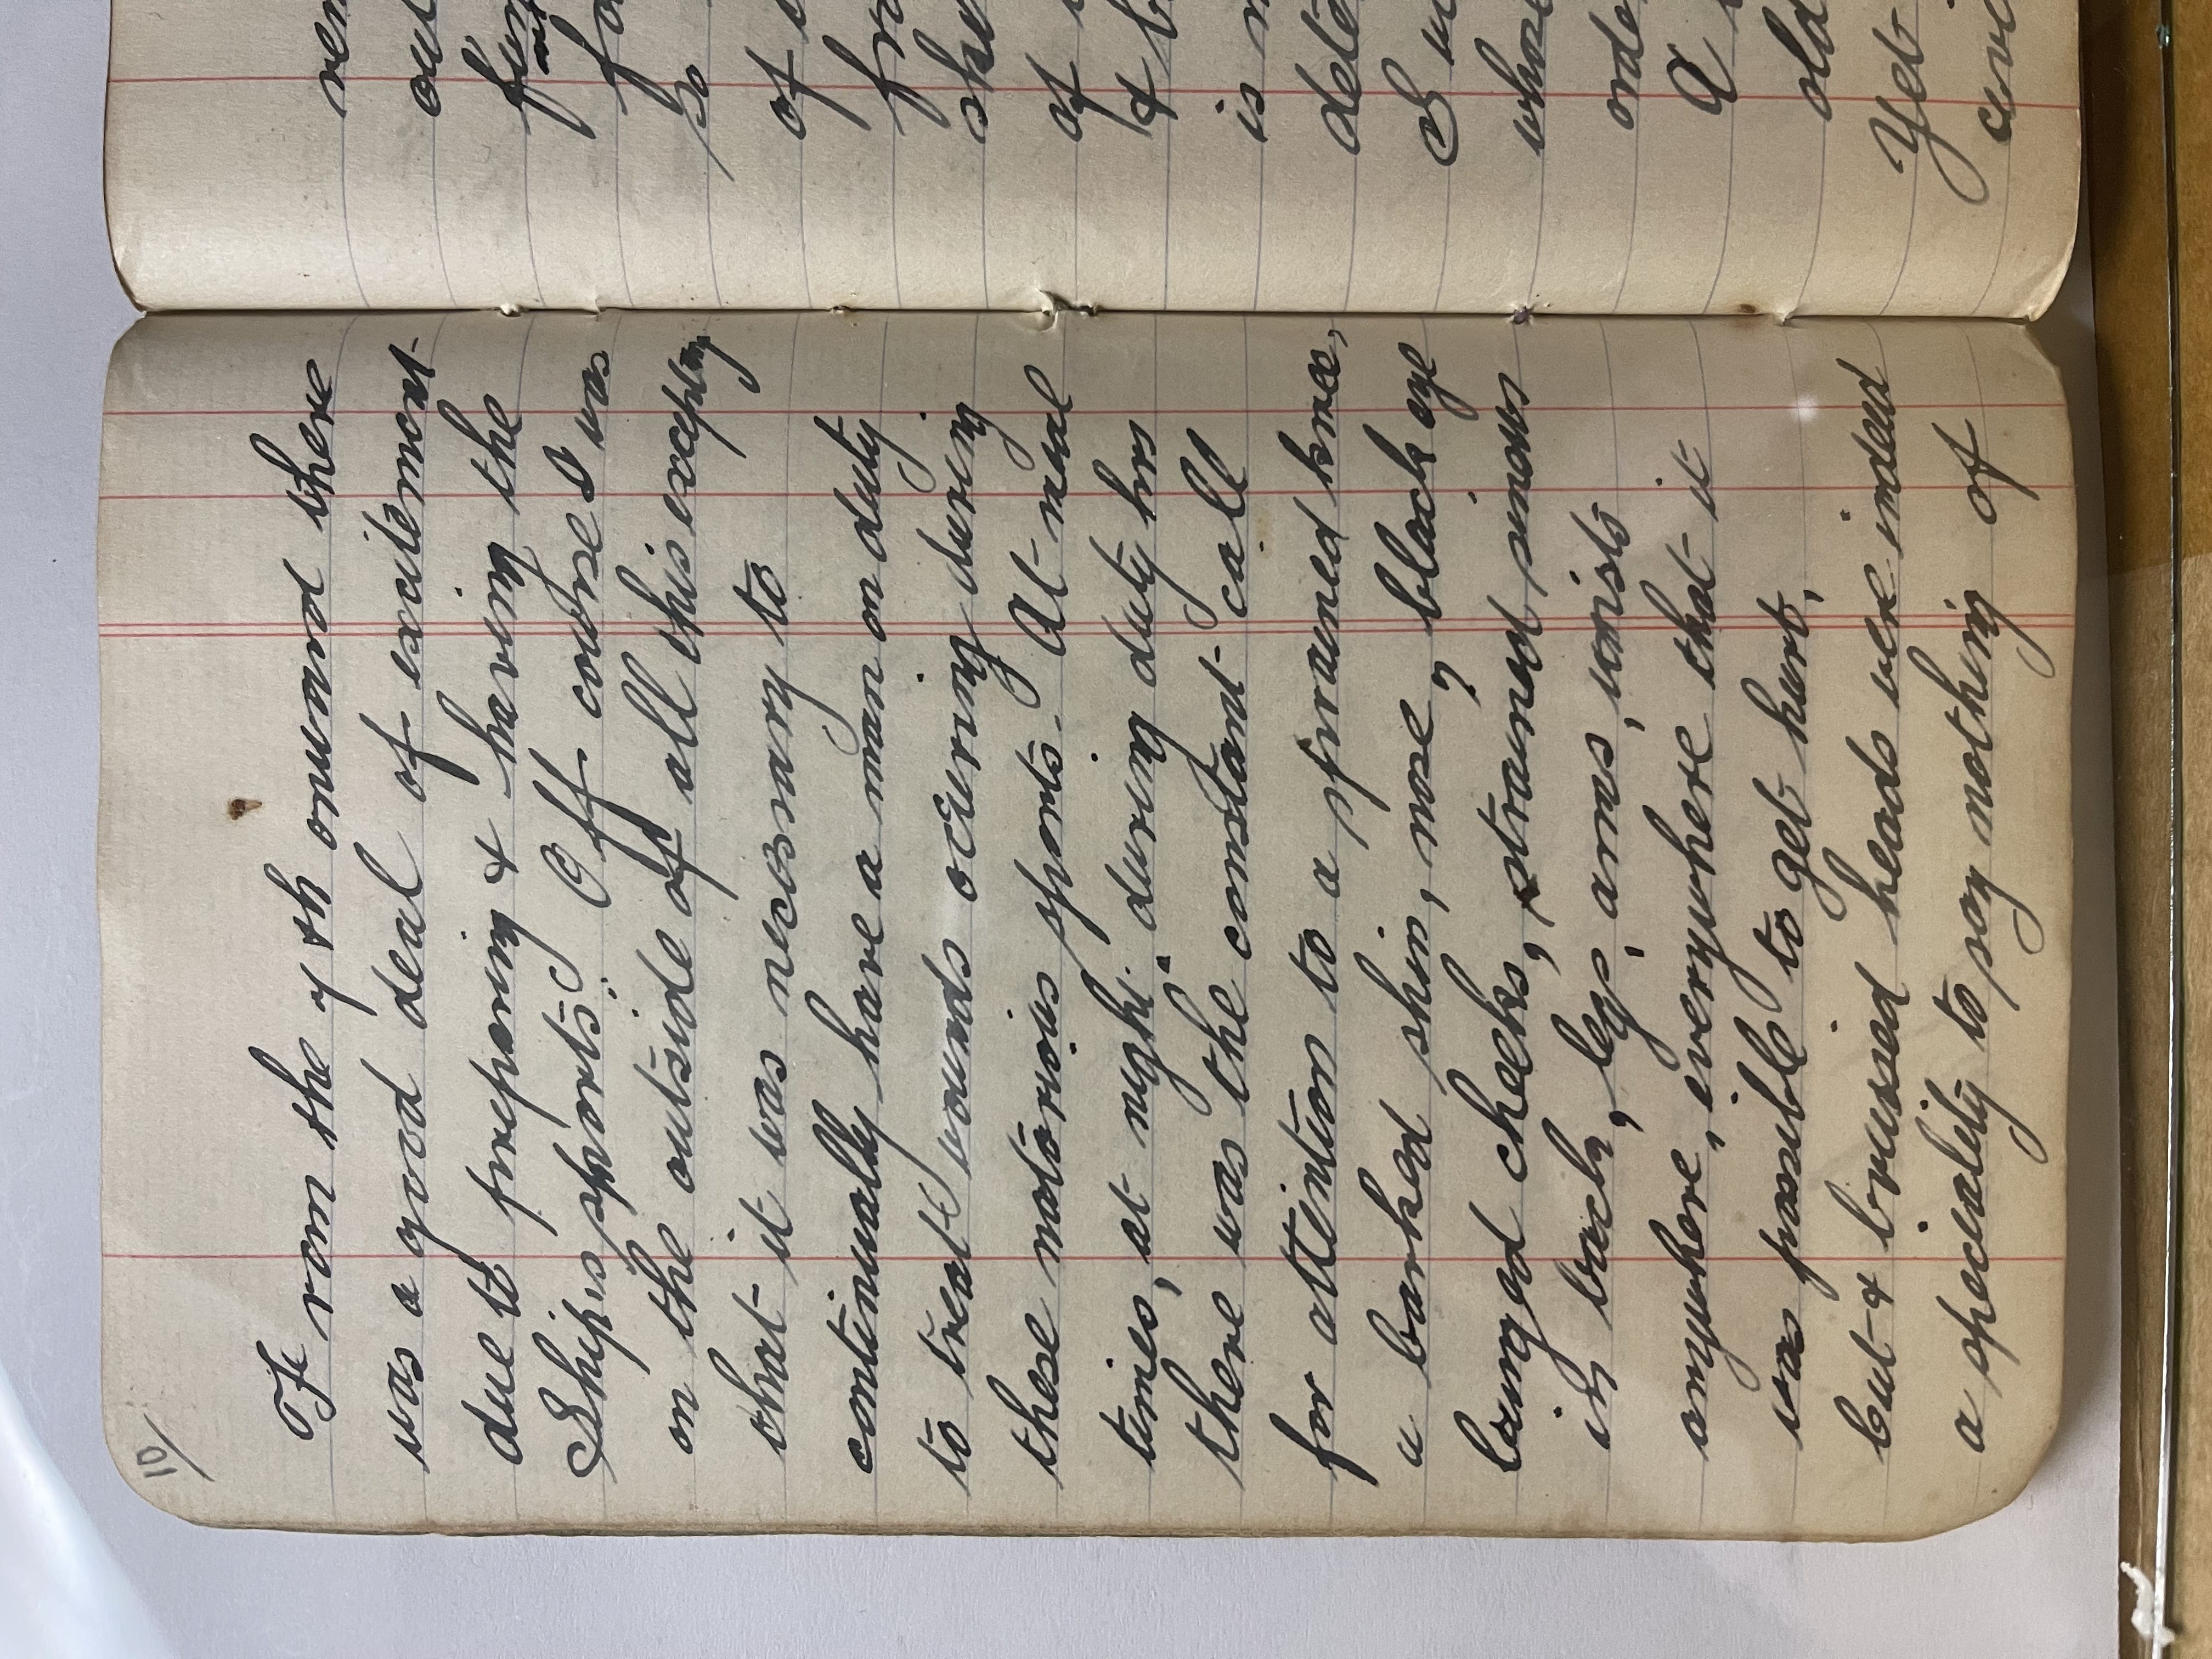 10/
From the 7th onward there
was a good deal of excitement
due to preparing & having the
Ship,s sports". Off course I was
on the outside of all this excepting
that it was necessary to
continually have a man on duty
to treat wounds occuring during
these notorious sports. At meal
times, at night, during duty hrs
there was the constant call
for attention to a sprained knee,
a barked shin, nose, black eye
bunged cheeks, strained sinows
in back, legs, arms, wrists
anywhere, everywhere that it
was possible to get hurt,
but & bruised heads were indeed
a speciality to say nothing of
ren
out
fun
fo
so
of
fro
sh
of
& b
is
dete
I w
whose
orde
A
old
Yet
civi